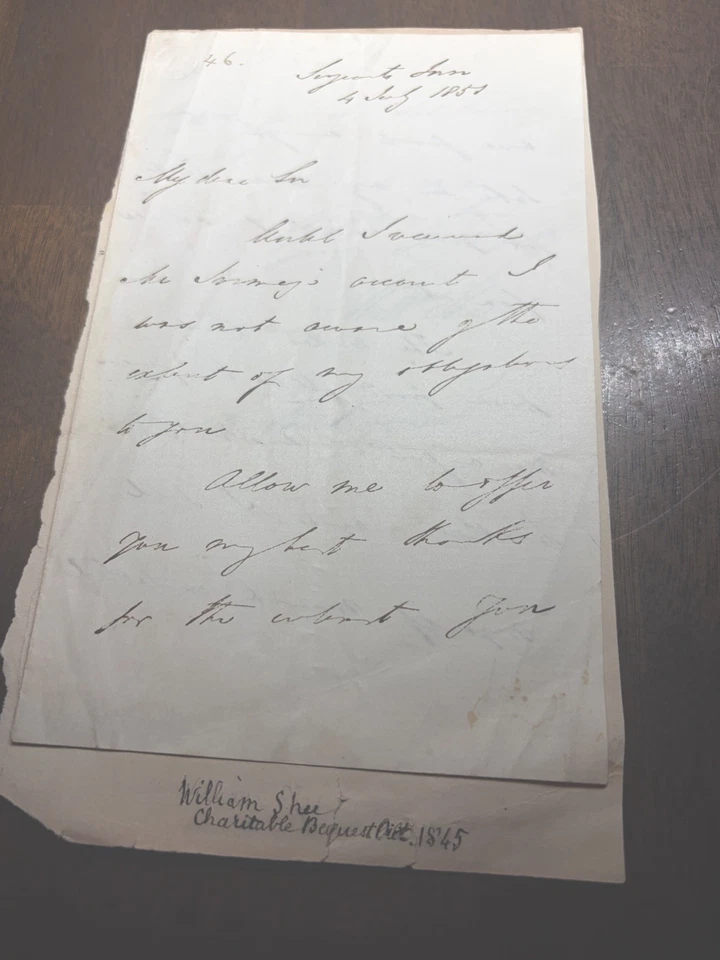 46.
Serjeants Inn
4 July 185
My dear Sir
Until I received
Mr account I
was not aware of the
extent of my obligations
to you
Allow me to offer
you my best thanks
for the interest you
William Shee
Charitable Bequest Act. 1845